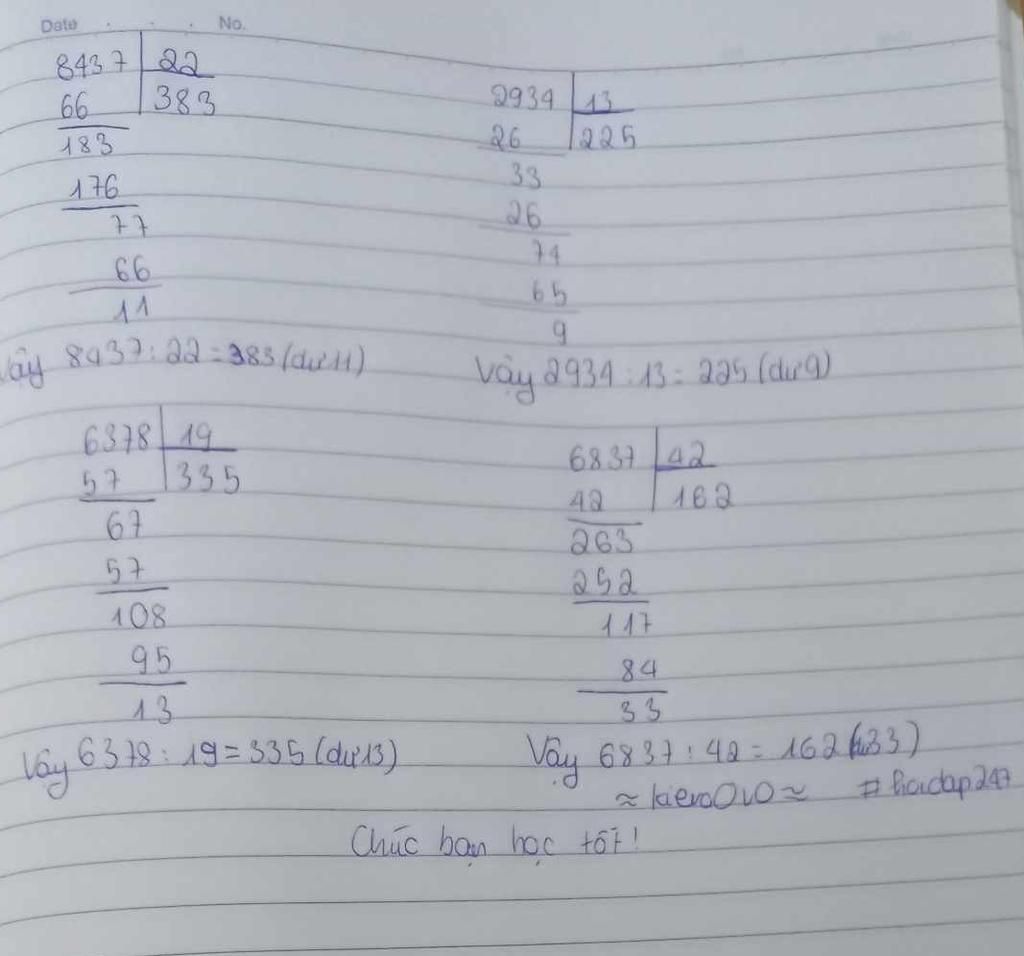 Date . . . No.
8437 22
66 383
183
176
77
66
11
Vậy 8437 : 22 = 383 (dư 11)
2934 13
26 225
33
26
74
65
9
Vậy 2934 : 13 = 225 (dư 9)
6378 19
57 335
67
57
108
95
13
Vậy 6378 : 19 = 335 (dư 13)
6837 42
42 162
263
252
117
84
33
Vậy 6837 : 42 = 162 (dư 33)
≈ ≈ #hoidap247
Chúc bạn học tốt!